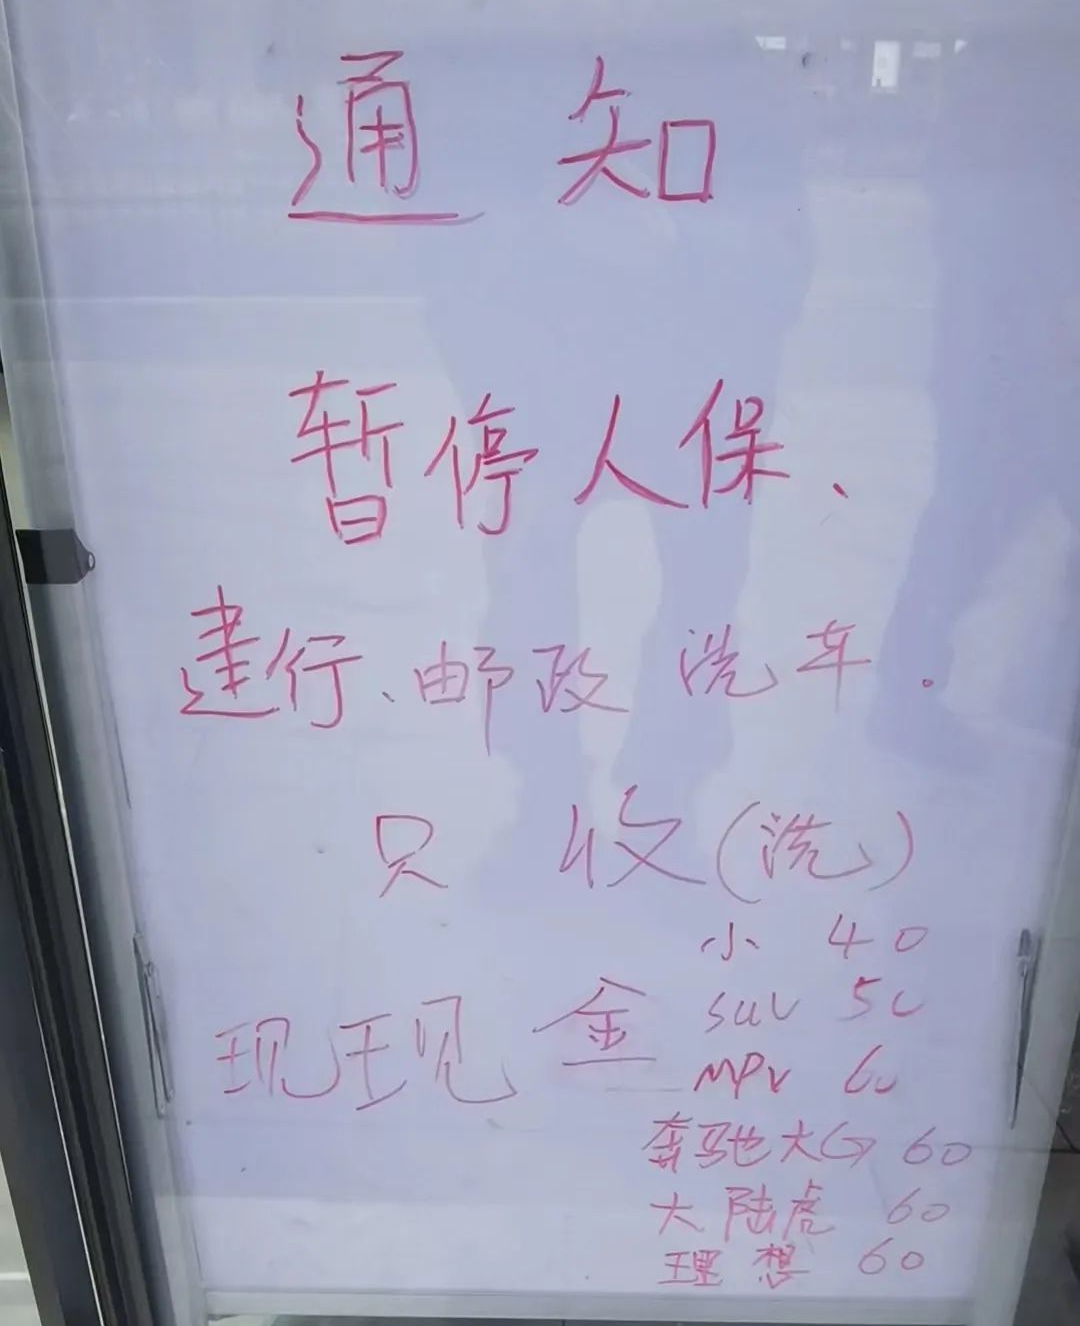 通知
暂停人保、
建行、邮政洗车.
只收(洗)
现现金
小 40
suv 50
mpv 60
奔驰大G 60
大陆虎 60
理想 60